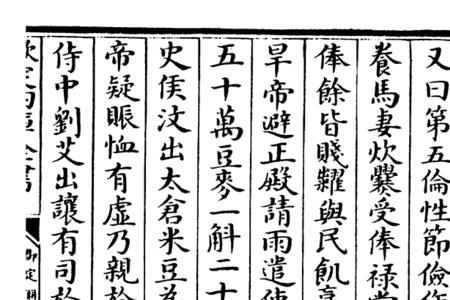 又曰第五倫性節儉
養馬妻炊爨受俸祿
俸餘皆賤糶與民飢
旱帝避正殿請雨遣使
五十萬豆麥一斛二十
史侯汶出太倉米豆為
帝疑賑恤有虛乃親於
侍中劉艾出讓有司於
欽定四庫全書
御定